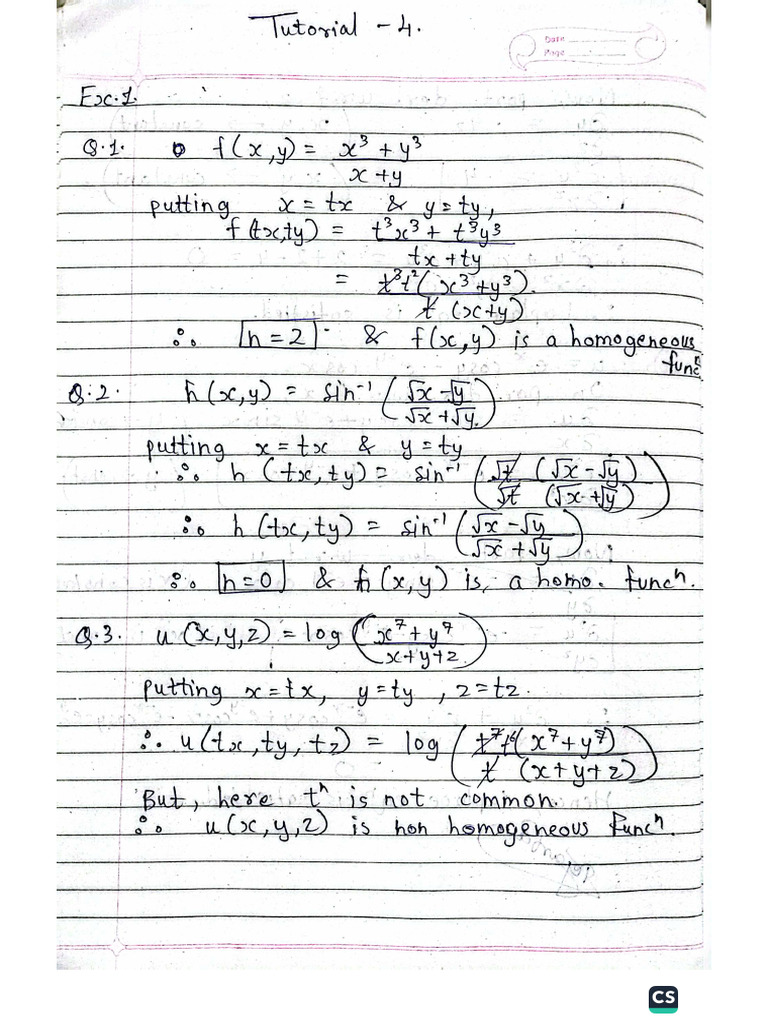 Tutorial - 4.
Date
Page
Ex.1.
Q.1. f(x,y) = x³ + y³ / x + y
putting x = tx & y = ty,
f(tx,ty) = t³x³ + t³y³ / tx + ty
= t³t²(x³+y³) / t (x+y)
∴ n = 2 & f(x,y) is a homogeneous funcⁿ
Q.2. h(x,y) = sin⁻¹(√x-√y / √x+√y)
putting x = tx & y = ty
∴ h (tx, ty) = sin⁻¹(√t (√x-√y) / √t (√x+√y))
∴ h (tx, ty) = sin⁻¹(√x-√y / √x+√y)
∴ n=0 & h(x,y) is, a homo. funcⁿ.
Q.3. u(x,y,z) = log(x⁷+y⁷ / x+y+z)
putting x = tx, y = ty, z = tz.
∴ u(tx,ty,tz) = log(t⁷t⁶(x⁷+y⁷) / t (x+y+z))
But, here tⁿ is not common.
∴ u(x,y,z) is non homogeneous funcⁿ.
CS